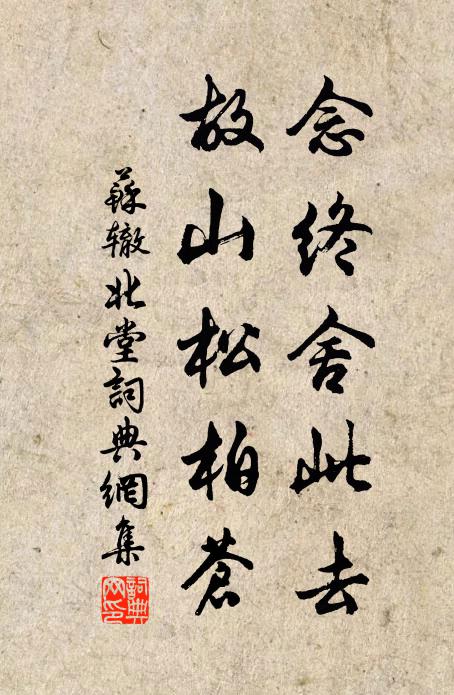 念终舍此去
故山松柏苍
蘇辙北堂詞典網集
詞典网印